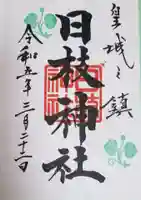 皇城之鎮
日枝神社
令和五年二月二十二日